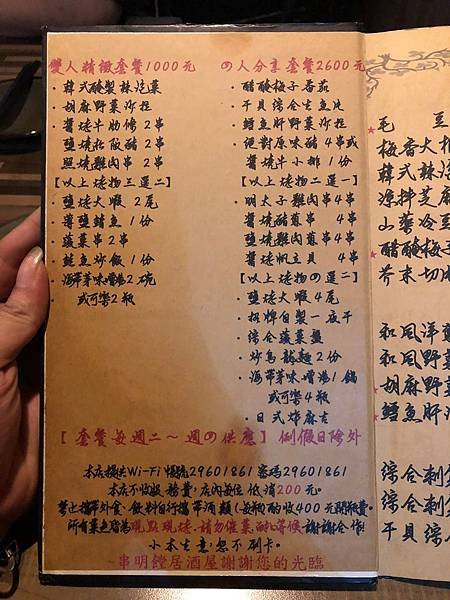 雙人精緻套餐1000元
・韓式醃製辣泡菜
・胡麻野菜沙拉
・醬燒牛肋條 2串
・鹽燒松阪豬 2串
・照燒雞肉串 2串
【以上燒物三選二】
・鹽燒大蝦 2尾
・薄鹽鯖魚 1份
・蔬菜串 2串
・鮭魚炒飯 1份
・海帶芽味噌湯2碗
・ 或可樂2瓶
四人分享套餐2600元
・醋醃梅子番茄
・干貝綜合生魚片
・鱈魚肝野菜沙拉
・絕對原味豬 4串或
・醬燒牛小排 1份
【以上燒物二選一】
・明太子雞肉串4串
・醬燒豬蔥串 4串
・鹽燒雞蔥串 4串
・醬燒帆立貝 4串
【以上燒物四選二】
・鹽燒大蝦 4尾
・招牌自製一夜干
・綜合蔬菜盤
・炒烏龍麵 2份
・海帶芽味噌湯 1鍋
或可樂4瓶
・日式炸麻吉
【套餐每週二～週四供應】例假日除外
本店提供Wi-Fi 帳號29601861 密碼29601861
本店不收服務費,店內每位 低消200元。
禁止攜帶外食、飲料自行攜帶酒類(每瓶酌收400元開瓶費。
所有菜色皆為現點現燒,請勿催菜 耐心等候 謝謝合作!
小本生意恕不刷卡。
~串明餖居酒屋謝謝您的光臨
毛 豆
梅香大
韓式辣泡
涼拌芝麻
山藥冷豆
醋醃梅子
芥末切
和風洋蔥
和風野菜
胡麻野菜
鱈魚肝沙
綜合刺
綜合刺
干貝綜